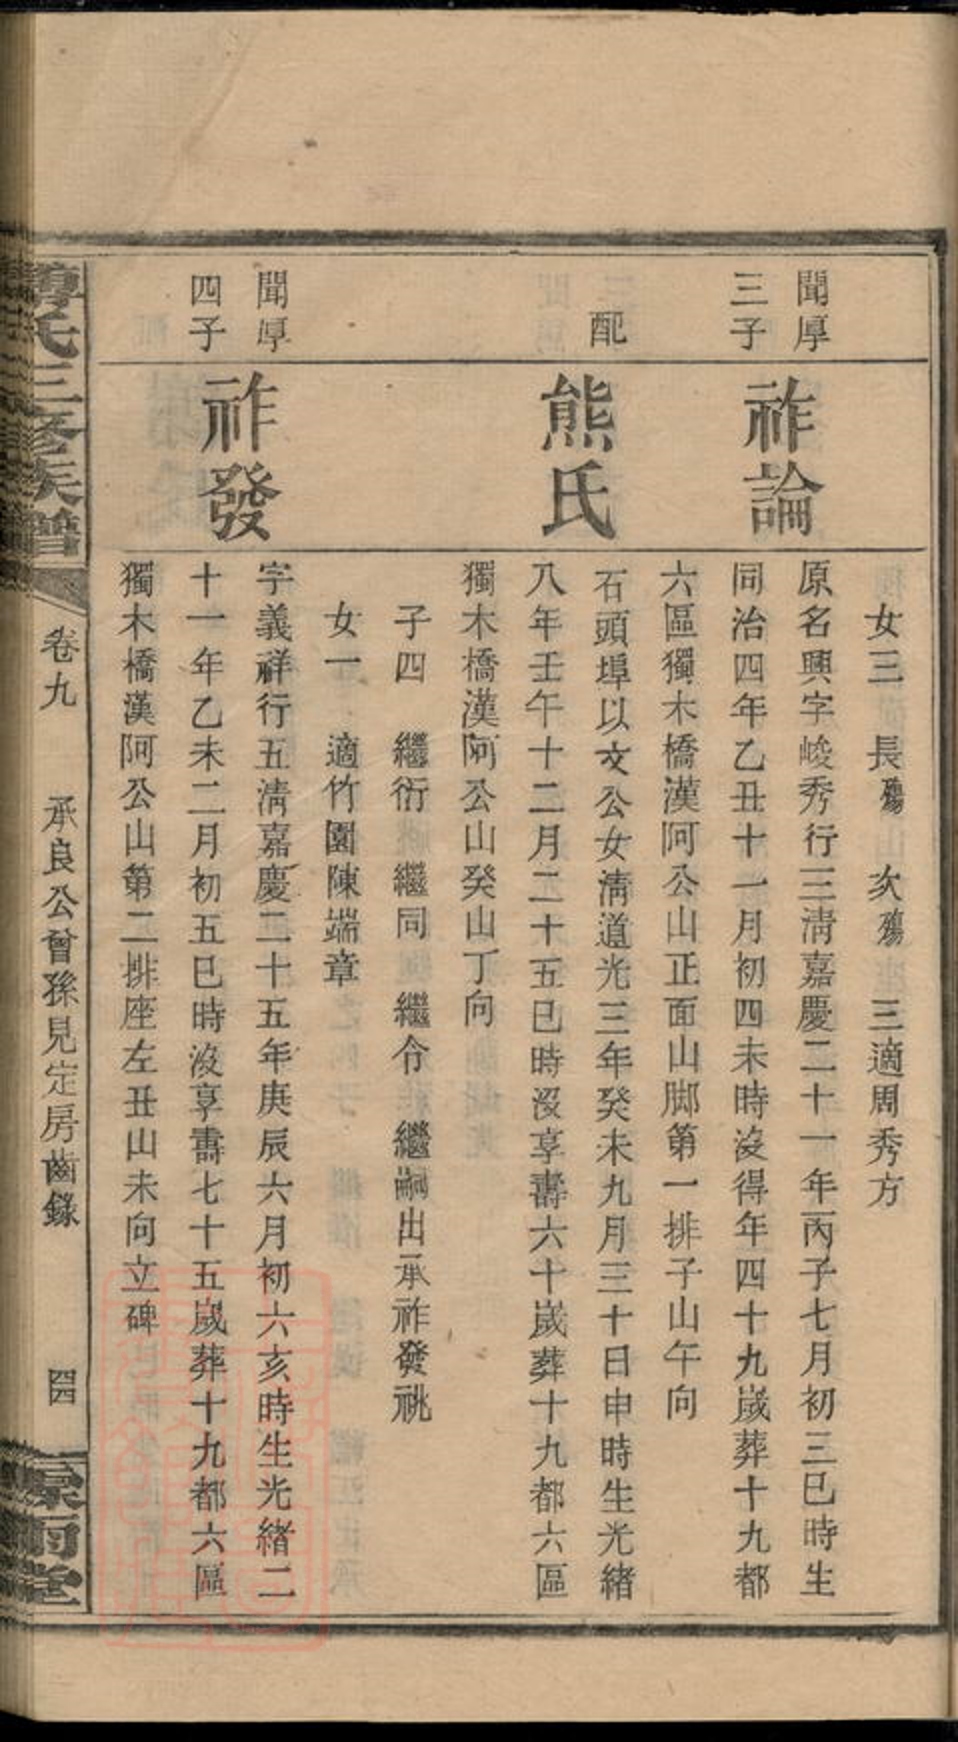 女三 長殤 次殤 三適周秀方
聞厚
三子
祚論
原名興字峻秀行三淸嘉慶二十一年丙子七月初三巳時生
同治四年乙丑十一月初四未時沒得年四十九歲葬十九都
六區獨木橋漢阿公山正面山脚第一排子山午向
配
熊氏
石頭埠以文公女淸道光三年癸未九月三十日申時生光緒
八年壬午十二月二十五巳時沒享壽六十歲葬十九都六區
獨木橋漢阿公山癸山丁向
子四 繼衍 繼同 繼令 繼嗣出承祚發祧
女一 適竹園陳端章
聞厚
四子
祚發
字義祥行五淸嘉慶二十五年庚辰六月初六亥時生光緒二
十一年乙未二月初五巳時沒享壽七十五歲葬十九都六區
獨木橋漢阿公山第二排座左丑山未向立碑
氏三修族譜
卷九
承良公曾孫見定房齒錄
四四
雨堂